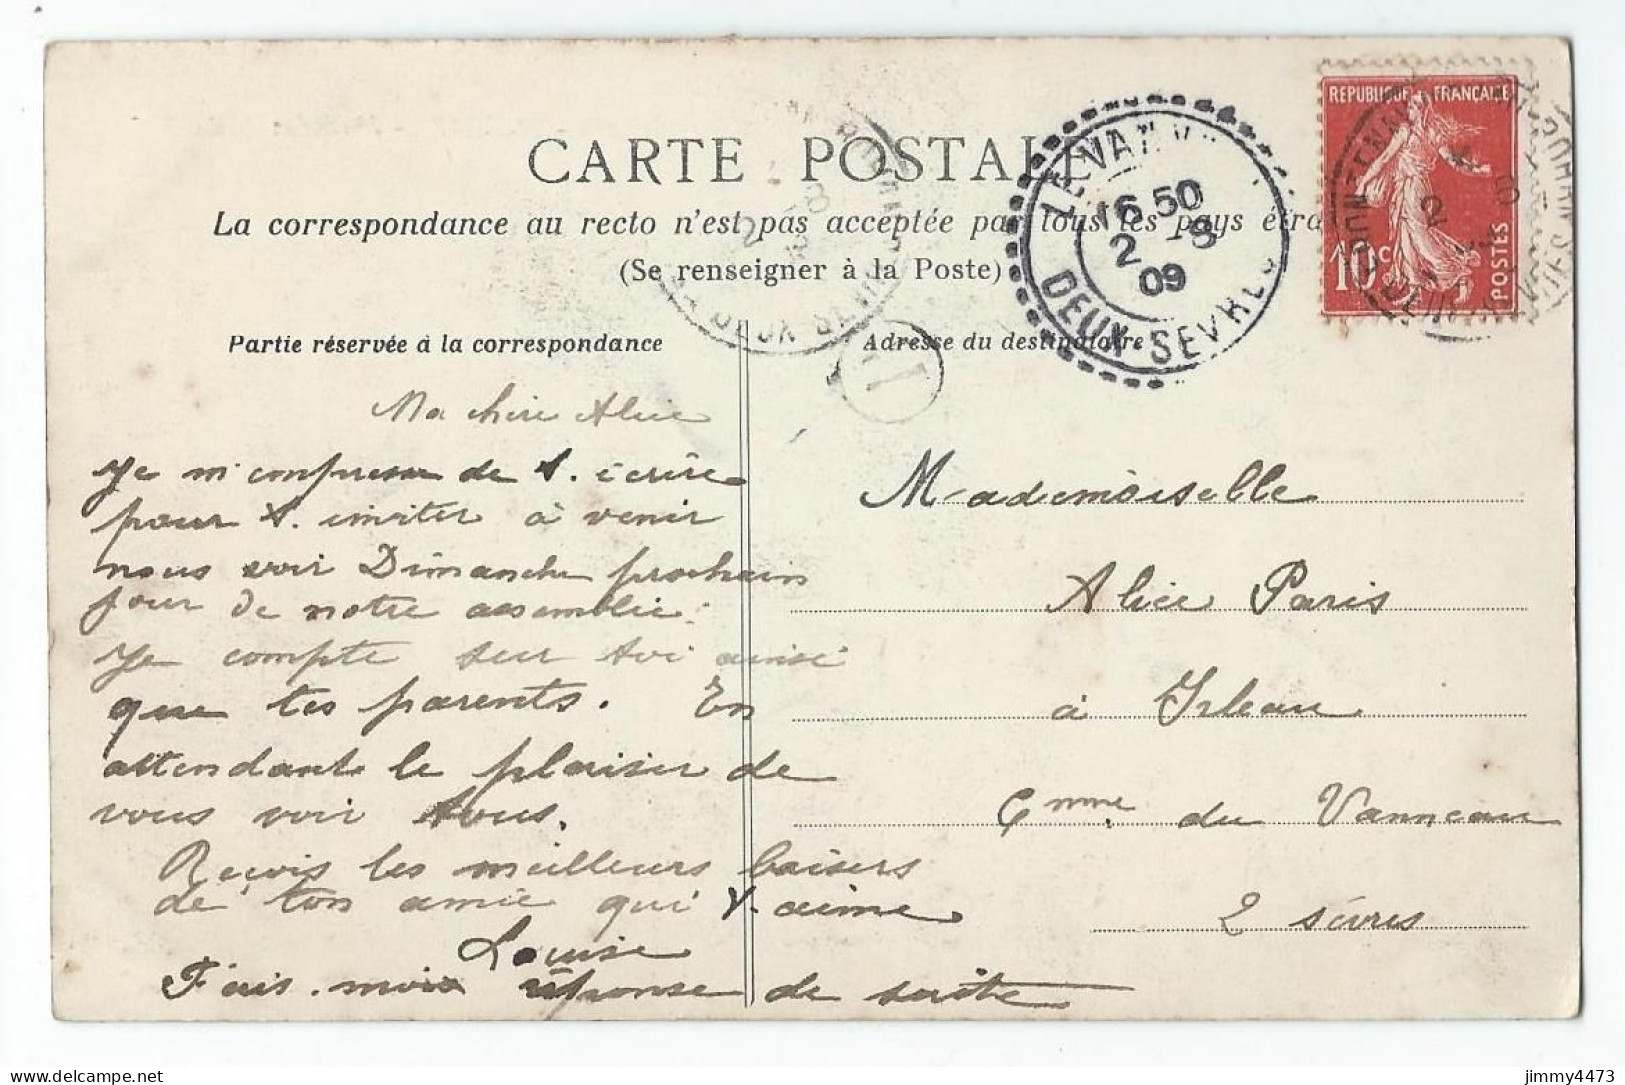 CARTE POSTALE
La correspondance au recto n'est pas acceptée par tous les pays étra
(Se renseigner à la Poste)
Partie réservée à la correspondance
Adresse du destinataire
REPUBLIQUE FRANCAISE
10c
POSTES
LE VANN
16 50
2 -8
09
DEUX-SEVRES
Ma chère Alice
Je m'empresse de t. écrire
pour t. inviter à venir
nous voir Dimanche prochain
jour de notre assemblée.
Je compte sur toi ainsi
que tes parents. En
attendant le plaisir de
vous voir tous.
Reçois les meilleurs baisers
de ton amie qui t. aime
Louise
Fais. moi réponse de suite
Mademoiselle
Alice Paris
à Irleau
Cmme. du Vanneau
2 sèvres
jimmy4473